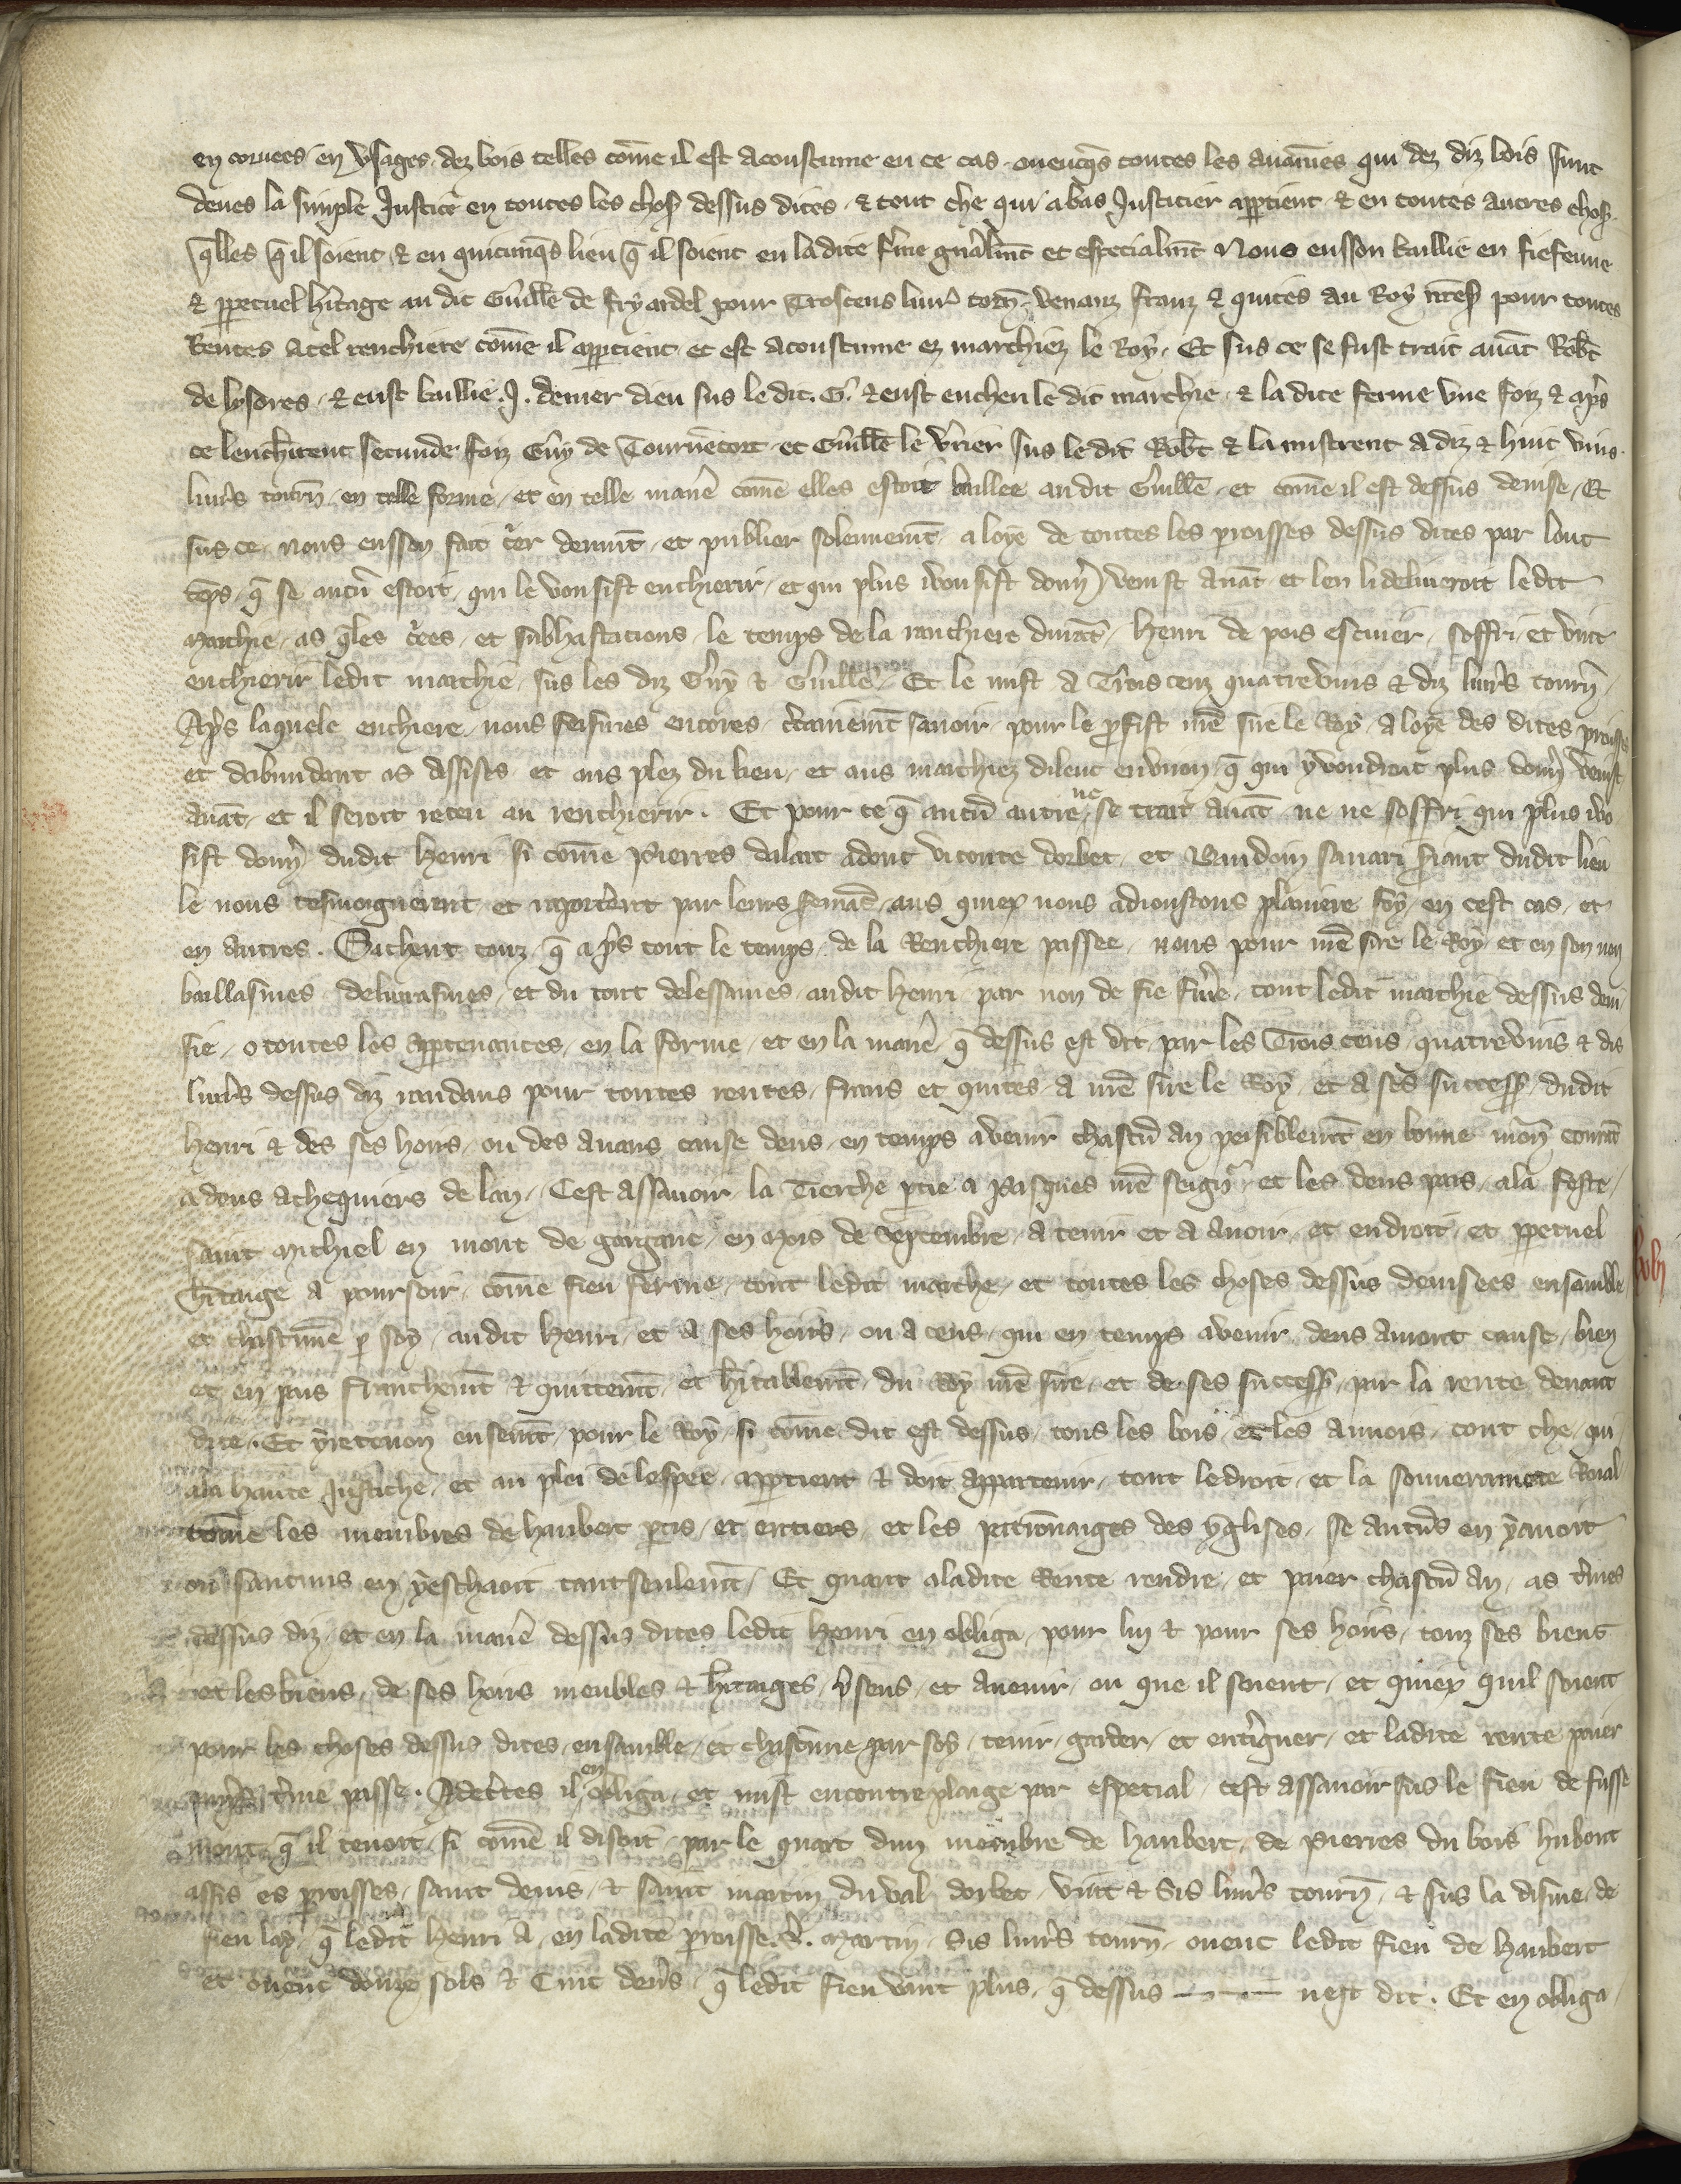 en coruees en vsages dez bois telles com̄e il est acoustume en ce cas ouecq̄s toutes les auain̄es qui dez diz bois sunt
deues la simple Justice en toutes les chos dessus dites & tout che qui a bas Justicier ap̱tient & en toutes autres chos
q̄lles q̄ il soient & en quicunq̄s lieu q̄ il soient en ladite fme gn̄alm̄t et especialm̄t Nous eusson baillie en fiefeume
& p̱petuel h̄itage au dit Guill̄e de fryardel pour Troscens liur̄ torn̄ . venanz franz & quites au Roy nr̄es pour toutes
Rentes a tel renchiere com̄e il ap̱tient et est acoustume ez marchiez le Roy . Et sus ce se fust trait auāt Rob̄t
de lysores . & eust baillie .J. denier dieu sus le dit . G . & eust encheu le dit marchie & la dite ferme vne foiz & ap̄s
ce lench̄irent secunde foiz Guy de Tournētort et Guill̄e le v̄rier sus le dit Rob̄t & la mistrent a diz & huit vins
liur̄s tourn̄ . en telle forme et en telle manē com̄e elles estoit baillee au dit Guill̄e . et com̄e il est dessus deuise . Et
sus ce . nous eusson fait c̄er deuant . et publier solennem̄t a loye de toutes les proisses dessus dites par lont
tēps . q̄ se aucū estoit . qui le vousist enchierir . et qui plus i vousist don̄ venist auāt et len li deliueroit ledit
Marchie . as q̄les c̄ees . et subhastations . le temps de la ranchiere durāt . henri de pois escuier . soffri . et vint
enchierir ledit marchie . sus les diz Guy & Guill̄e . Et le mist a Trois cenz quatre vins & diz liur̄s tourn̄ .
Ap̄s laquele enchiere . nous feismes encores . c̄tainem̄t sauoir . pour le p̄fist mē sire le Roy . a loye des dites proisses
et dabundant as assises et aus plez du lieu . et aus marchiez dilenc enuiron . q̄ qui y voudroit plus don̄ venist
auāt . et il seroit receu au renchierir . Et pour ce q̄ aucū autre ne se trait auāt ne ne soffri qui plus i vo
sist don̄ dudit henri si com̄e pierres dalait adont viconte dorbec . et Baudoin sauari s̄iant dudit lieu
le nous tesmoignerent et raport̄ent par leurs semāc . aus quiex nous adioustons planiere foy . en cest cas . et
en autres . Sachent touz . q̄ ap̄s tout le temps de la Renchiere passee . nous pour mē sire le Roy . et en son non
baillasmes . deliurasmes . et du tout delessames . audit henri . par non de fie f̄me . tout ledit marchie dessus deui
sie . o toutes les ap̱tenances . en la forme . et en la manē q̄ dessus est dit . par les Trois cens . quatre vins & dis
liur̄s dessus diz randans pour toutes rentes . frans et quites . a mē sire le Roy . et a ses success̄ . dudit
henri & des ses hoirs . ou des auans cause deus . en temps a venir chascū an paisiblem̄t en bonne mon̄ courāt
a deus achequiers de lan . Cest assauoir . la Tierche p̄tie a pasques mē seign̄ . et les deus pars . a la feste .
saint michiel en mont de gargane . en mois de Septembre . a tenir et a auoir . et endroit . et p̱petuel
h̄itaige a poursoir . com̄e fieu ferme . tout ledit marche . et toutes les choses dessus deuisees ensamble
et chascunē p̱ soy . audit henri . et a ses hoirs . ou a ceus . qui en temps avenir deus auront cause . bien
et en pais franchem̄t & quittem̄t . et h̄itablem̄t . du Roy mē sire . et de ses success̄ . par la rente deuant
dite . Et y retenon ensem̄t . pour le Roy . si com̄e dit est dessus . tous les bois . et les aunois . tout che . qui
a la haute justiche . et au plei de lespee . ap̱tient & doit appartenir . tout le droit . et la souuerainete Roial
com̄e les membres de haubert p̄tis . et entiers . et les patrōnaiges des yglises . se aucūs en y auoit
ou saucuns en y eschaoit tant seulem̄t . Et quant a ladite Rente rendre . et paier chascū an . as t̄mes
dessus diz . et en la manē dessus dites ledit henri en obliga . pour lui & pour ses hoirs . touz ses biens
et les biens . de ses hoirs meubles & h̄itaiges . p̄sens . et avenir . ou que il soient . et quiex quil soient
pour les choses dessus dites . ensamble . et chascune par soy . tenir . garder . et ent̄igner . et ladite rente paier
t̄me passe . Adec̄tes il en obliga . et mist en contreplaige par especial . cest assauoir sus le fieu de fusse
mont . q̄ il tenoit . si com̄e il disoit . par le quart dun membre de haubert . de pierres du bois hubout
assis es proisses . saint denis . & saint martin du val dorbec . vint & Sis liur̄s tourn̄ . & sus la disme . de
fieu lay . q̄ ledit henri a . en ladite proisse . s̄ . martin . Sis liur̄s tourn̄ . ouenc ledit fieu de haubert
et ouenc douze sols & Cinc den̄s . q̄ ledit fieu vaut plus . q̄ dessus nest dit . Et en obliga .